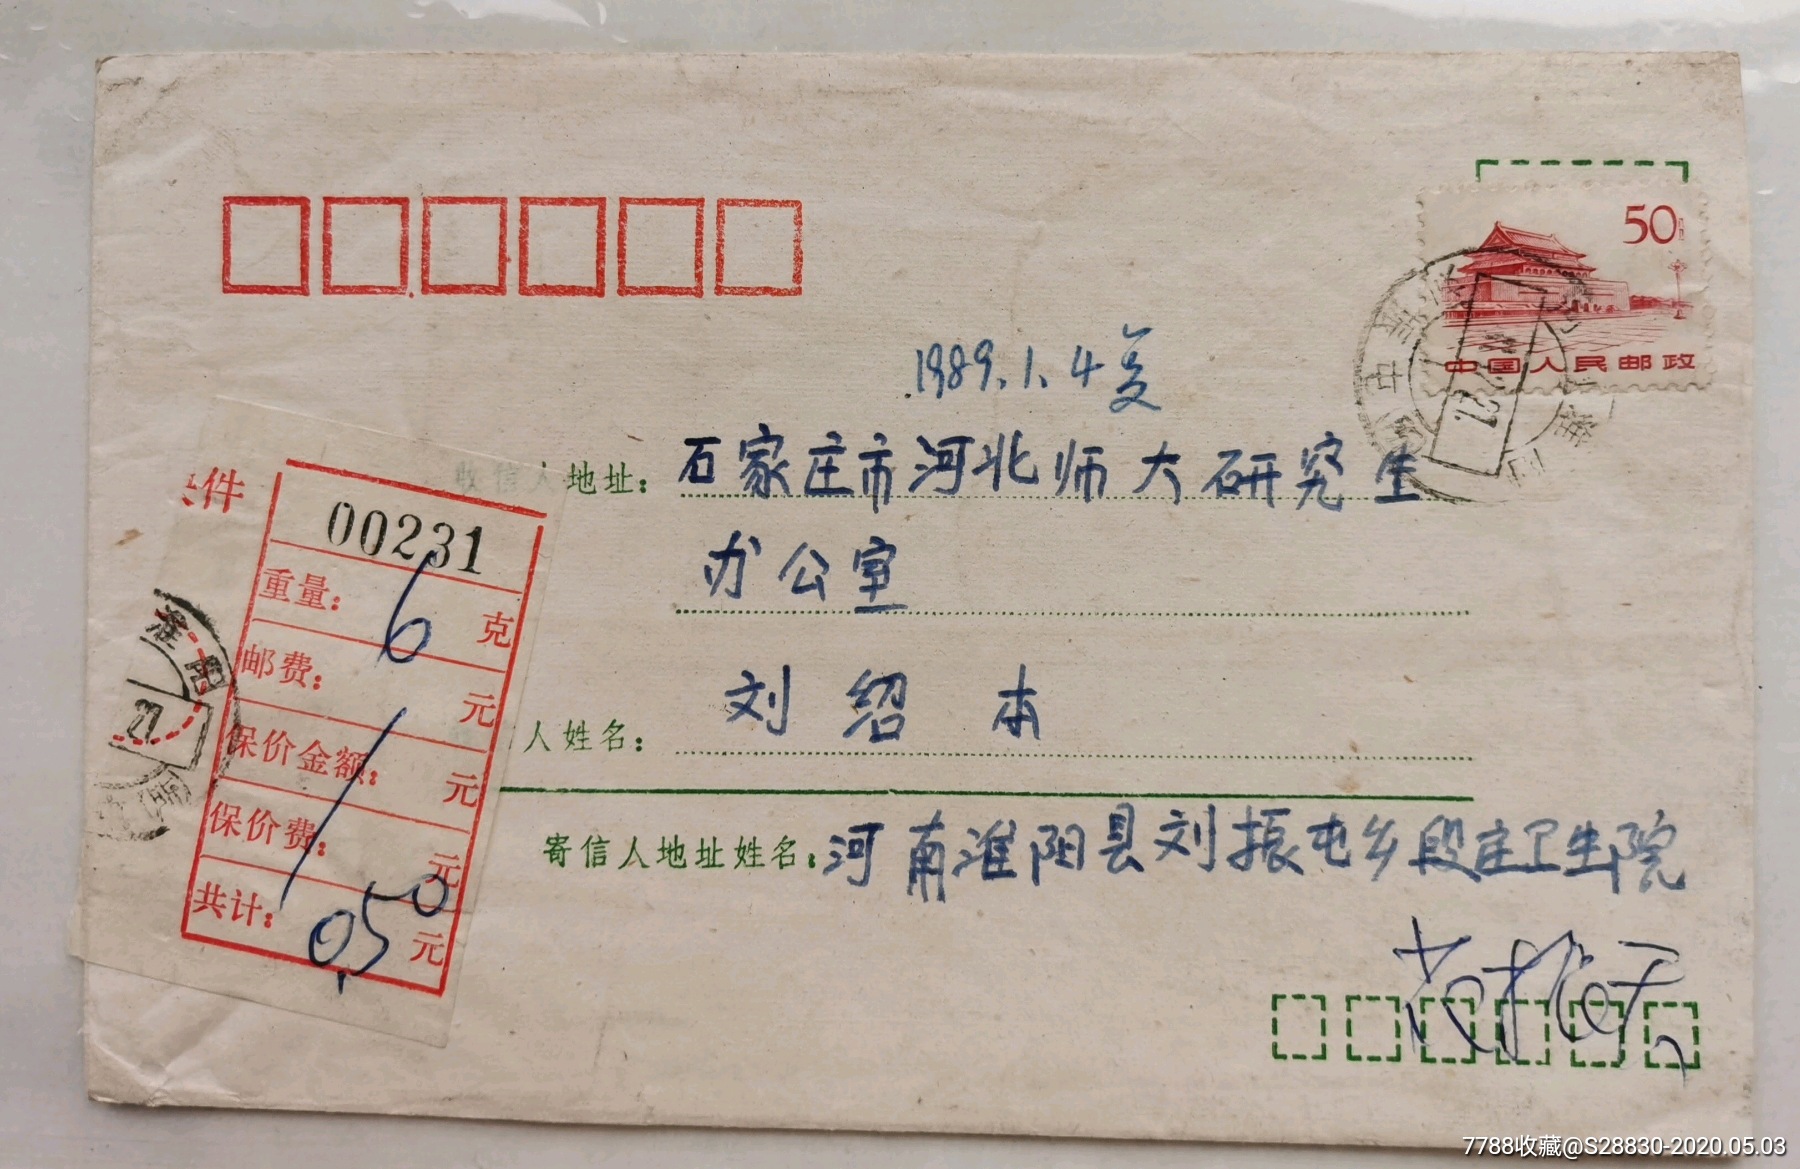 50分
中国人民邮政
1989.1.4复
收信人地址：石家庄市河北师大研究生
办公室
人姓名：刘绍本
寄信人地址姓名：河南淮阳县刘振屯乡段庄卫生院
件
00231
重量：6克
邮费：元
保价金额：元
保价费：元
共计：0.50元
淮阳
27
7788收藏@S28830-2020.05.03